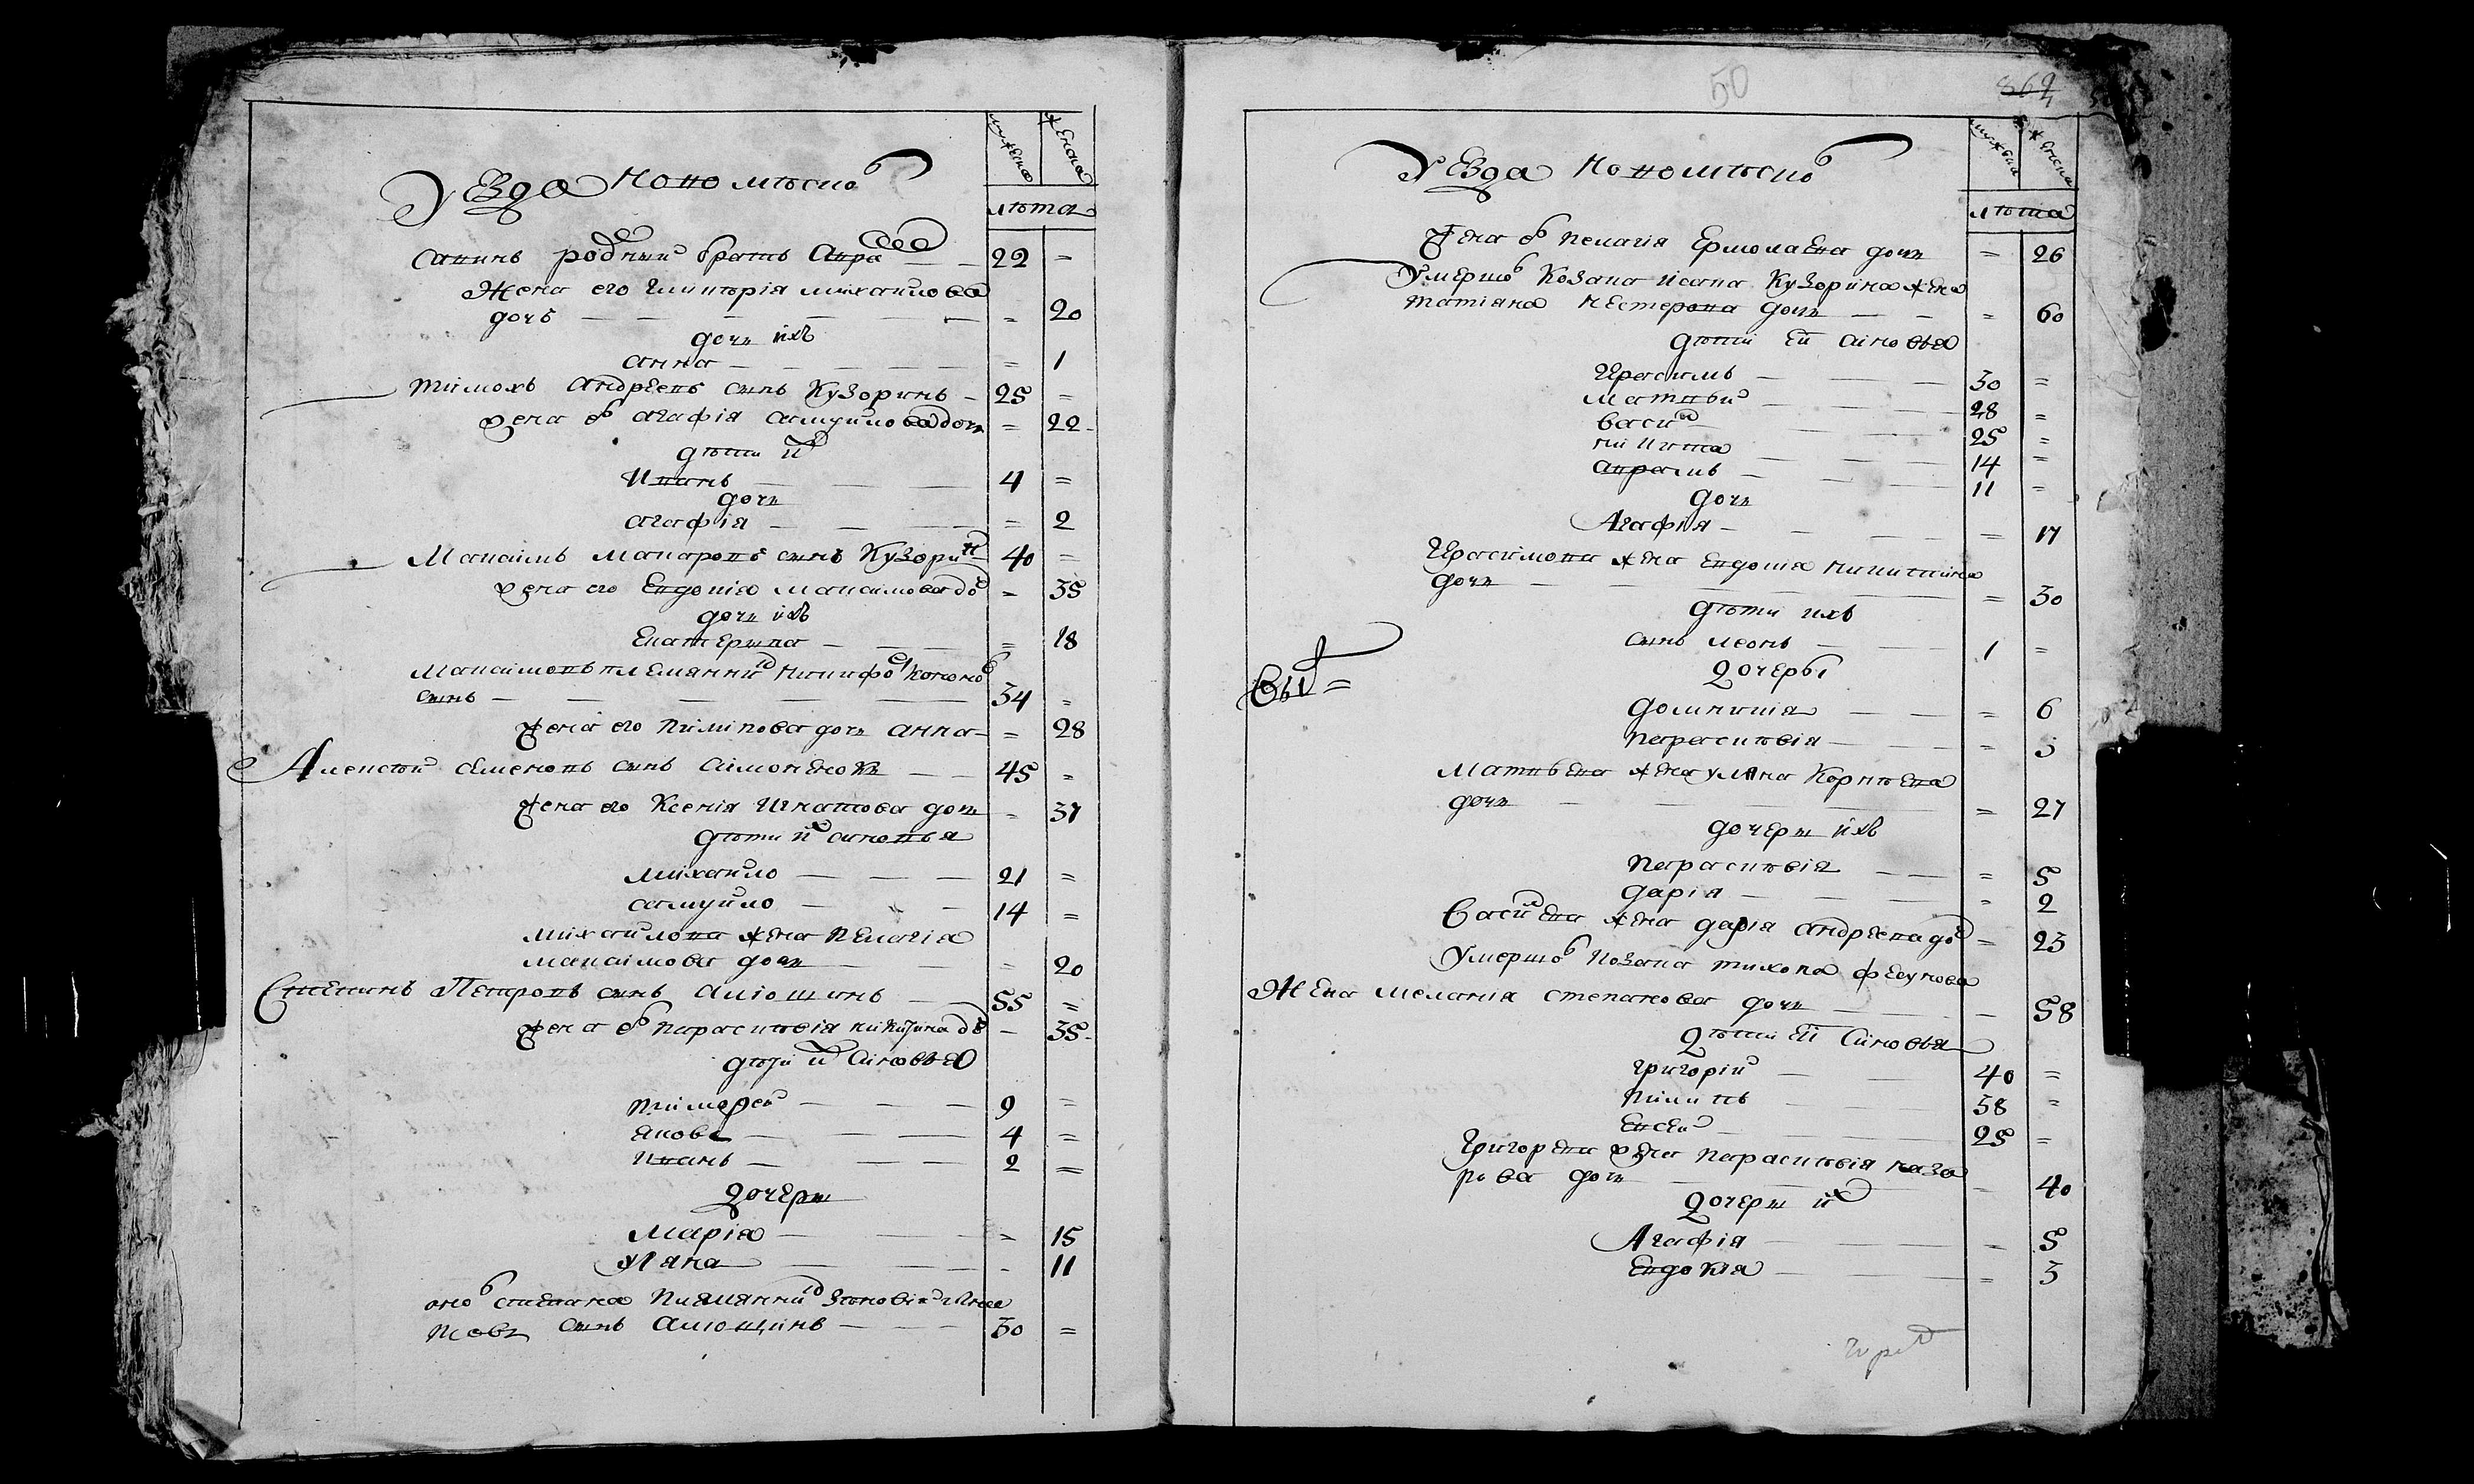 мужеска
женска
Уезда Новомлинского
лѣта
Савинъ родный братъ Авра 22 =
Жена его Гликѣрія михаилова
дочь = 20
дочь ихъ
анна = 1
тимохъ андрѣевъ синъ Кузоринъ 25 =
жена ег агафія самуилова дочь = 22
дѣти их
Иванъ 4 =
дочь
агафія = 2
Максимъ макаровъ синъ Кузорин 40 =
жена его Евдокия максимова до = 35
дочь ихъ
Екатерина = 18
Максимовъ племянник никифор коно
синъ 34 =
жена его пилипова дочь анна = 28
Алексѣй семеновъ синъ симоненокъ 45 =
жена его Ксенія Игнатова дочь = 37
дѣти их синовья
михаило 21 =
самуило 14 =
михаилова жена пелагія
максимова дочь = 20
Степанъ Петровъ синъ алюшинъ 55 =
жена ег параскѣвія никитина до = 35
дѣти их синовья
тимофей 9 =
яковъ 4 =
иванъ 2 =
дочери
марія = 15
уляна = 11
оног степана племянник зѣновій
синъ алюшинъ 30 =
50
мужеска
женска
Уезда Новомлинско
лѣта
жена ег пелагія Ермолаева дочь = 26
Умершог козака исака Кузорина жена
татіана нестерова дочь = 60
дѣти ей синовья
Герасимъ 30 =
матвѣй 28 =
васил 25 =
никита 14 =
аврамъ 11 =
дочь
Агафія = 17
Герасимова жена Евдокия никитина
дочь = 30
дѣти ихъ
синъ леонъ 1 =
дочеры
домникия = 6
параскѣвія = 3
матвѣева жена уляна Корнѣева
дочь = 27
дочери ихъ
параскѣвія = 5
дарія = 2
Василева жена дарія андрѣева до = 23
Умершог козака тихона
Жена меланія степанова дочь = 58
дѣти ей синовья
григорій 40 =
пилипъ 38 =
Евсей 25 =
Григорева жена параскѣвія наза
рова дочь = 40
дочери их
Агафія = 5
Евдокия = 3